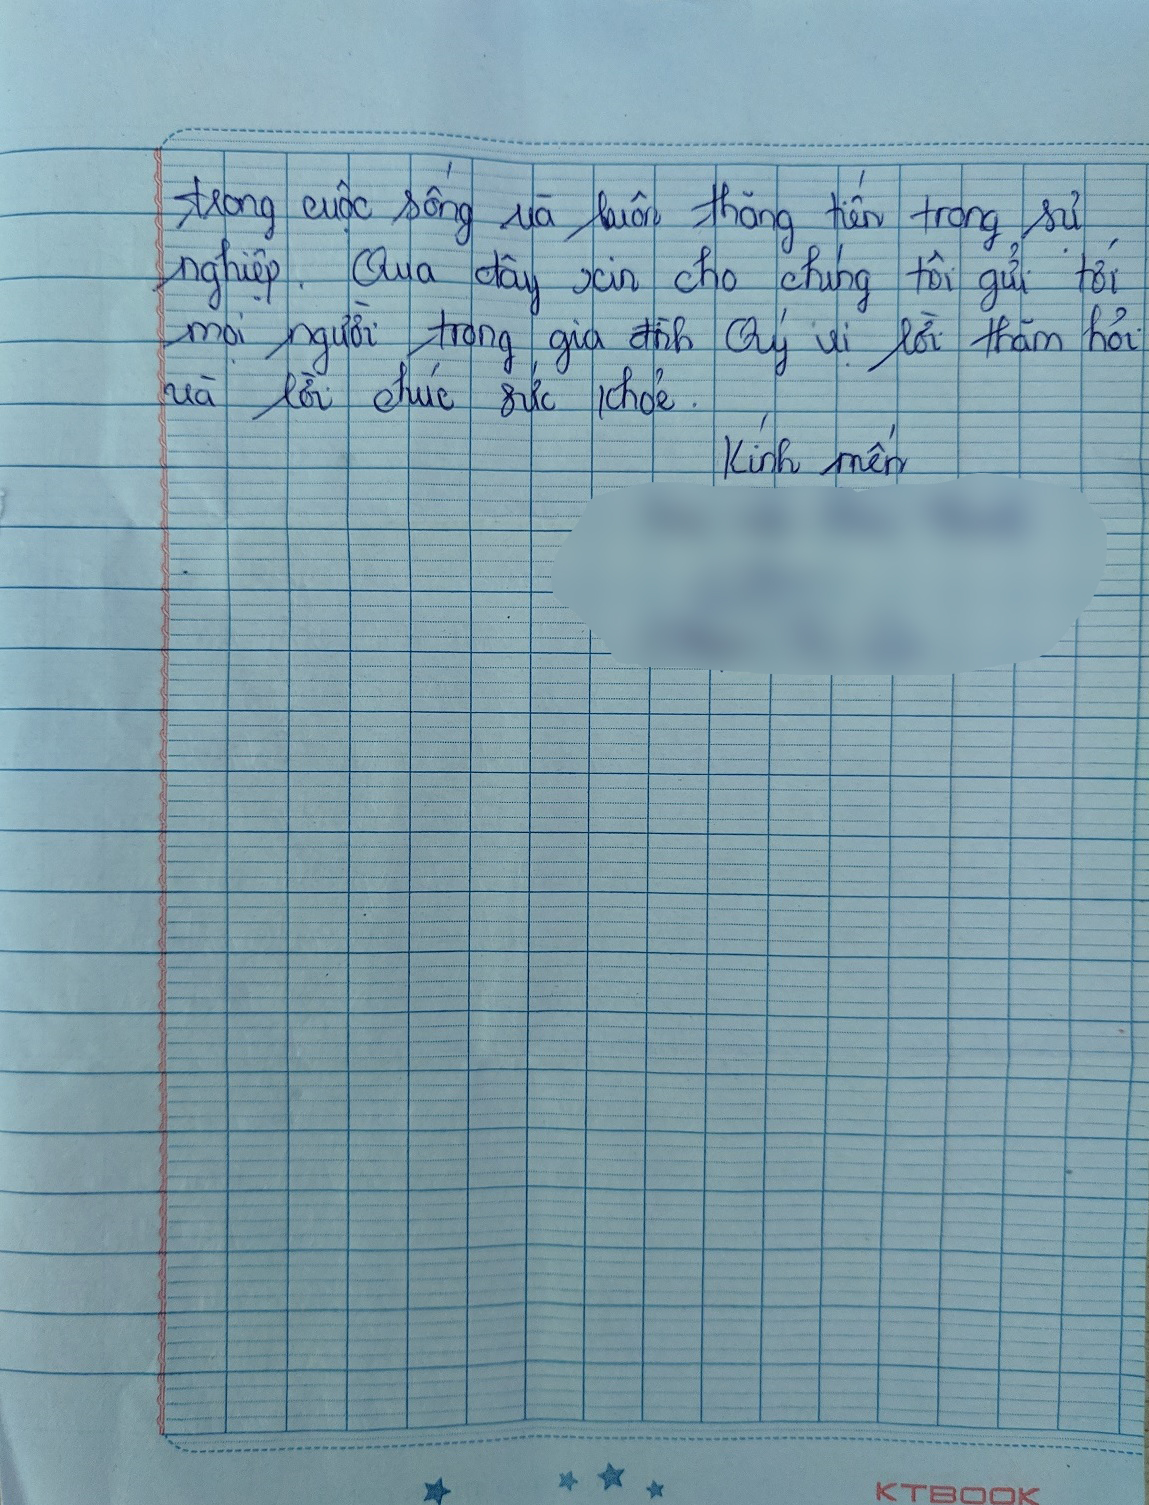 trong cuộc sống và luôn thăng tiến trong sự
nghiệp. Qua đây xin cho chúng tôi gửi tới
mọi người trong gia đình Quý vị lời thăm hỏi
và lời chúc sức khoẻ.
Kính mến
KTBOOK